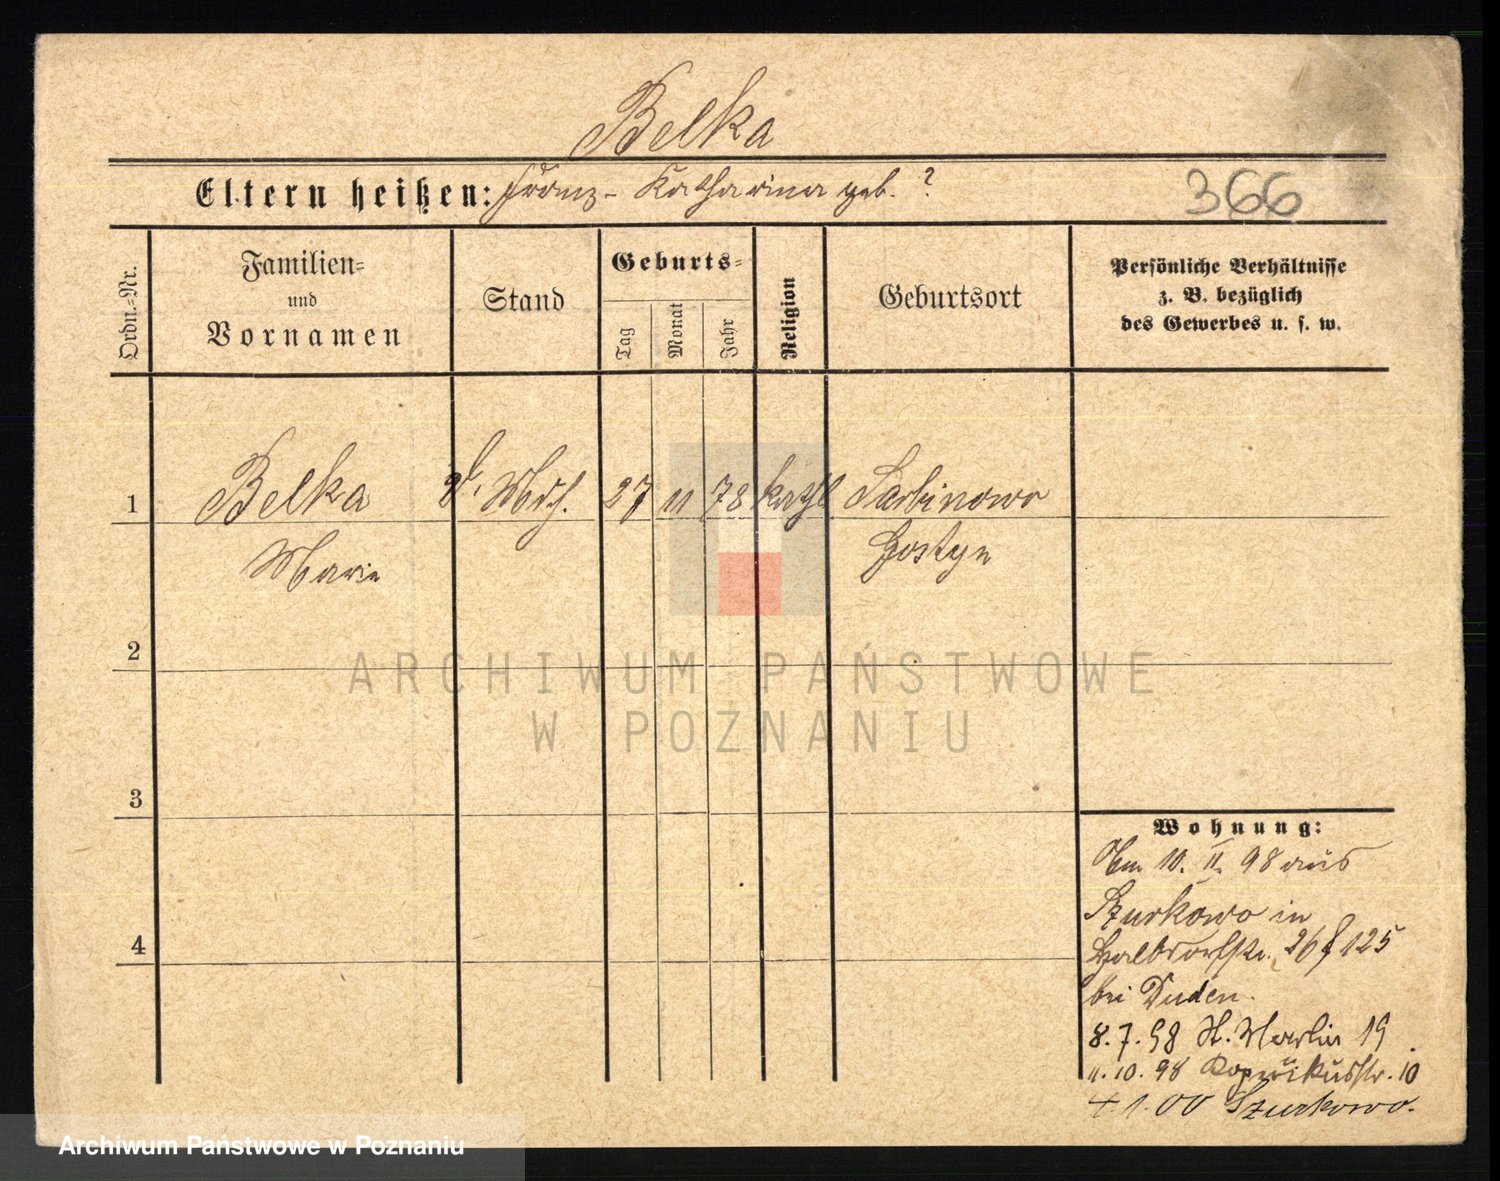 Belka
Eltern heißen: Franz - Katharina geb. ?
366
Ordn.-Nr.
Familien-
und
Vornamen
Stand
Geburts-
Tag
Monat
Jahr
Religion
Geburtsort
Persönliche Verhältnisse
z. B. bezüglich
des Gewerbes u. s. w.
1
Belka
27
11
78
kath
Sarbinowo
Marie
Gostyn
2
ARCHIWUM PAŃSTWOWE
W POZNANIU
3
4
Wohnung:
10. II. 98 aus
Szurkowo in
26 125
bei Duden.
8.7.98 St. Martin 19
11.10.98 10
1.00 Szurkowo.
Archiwum Państwowe w Poznaniu